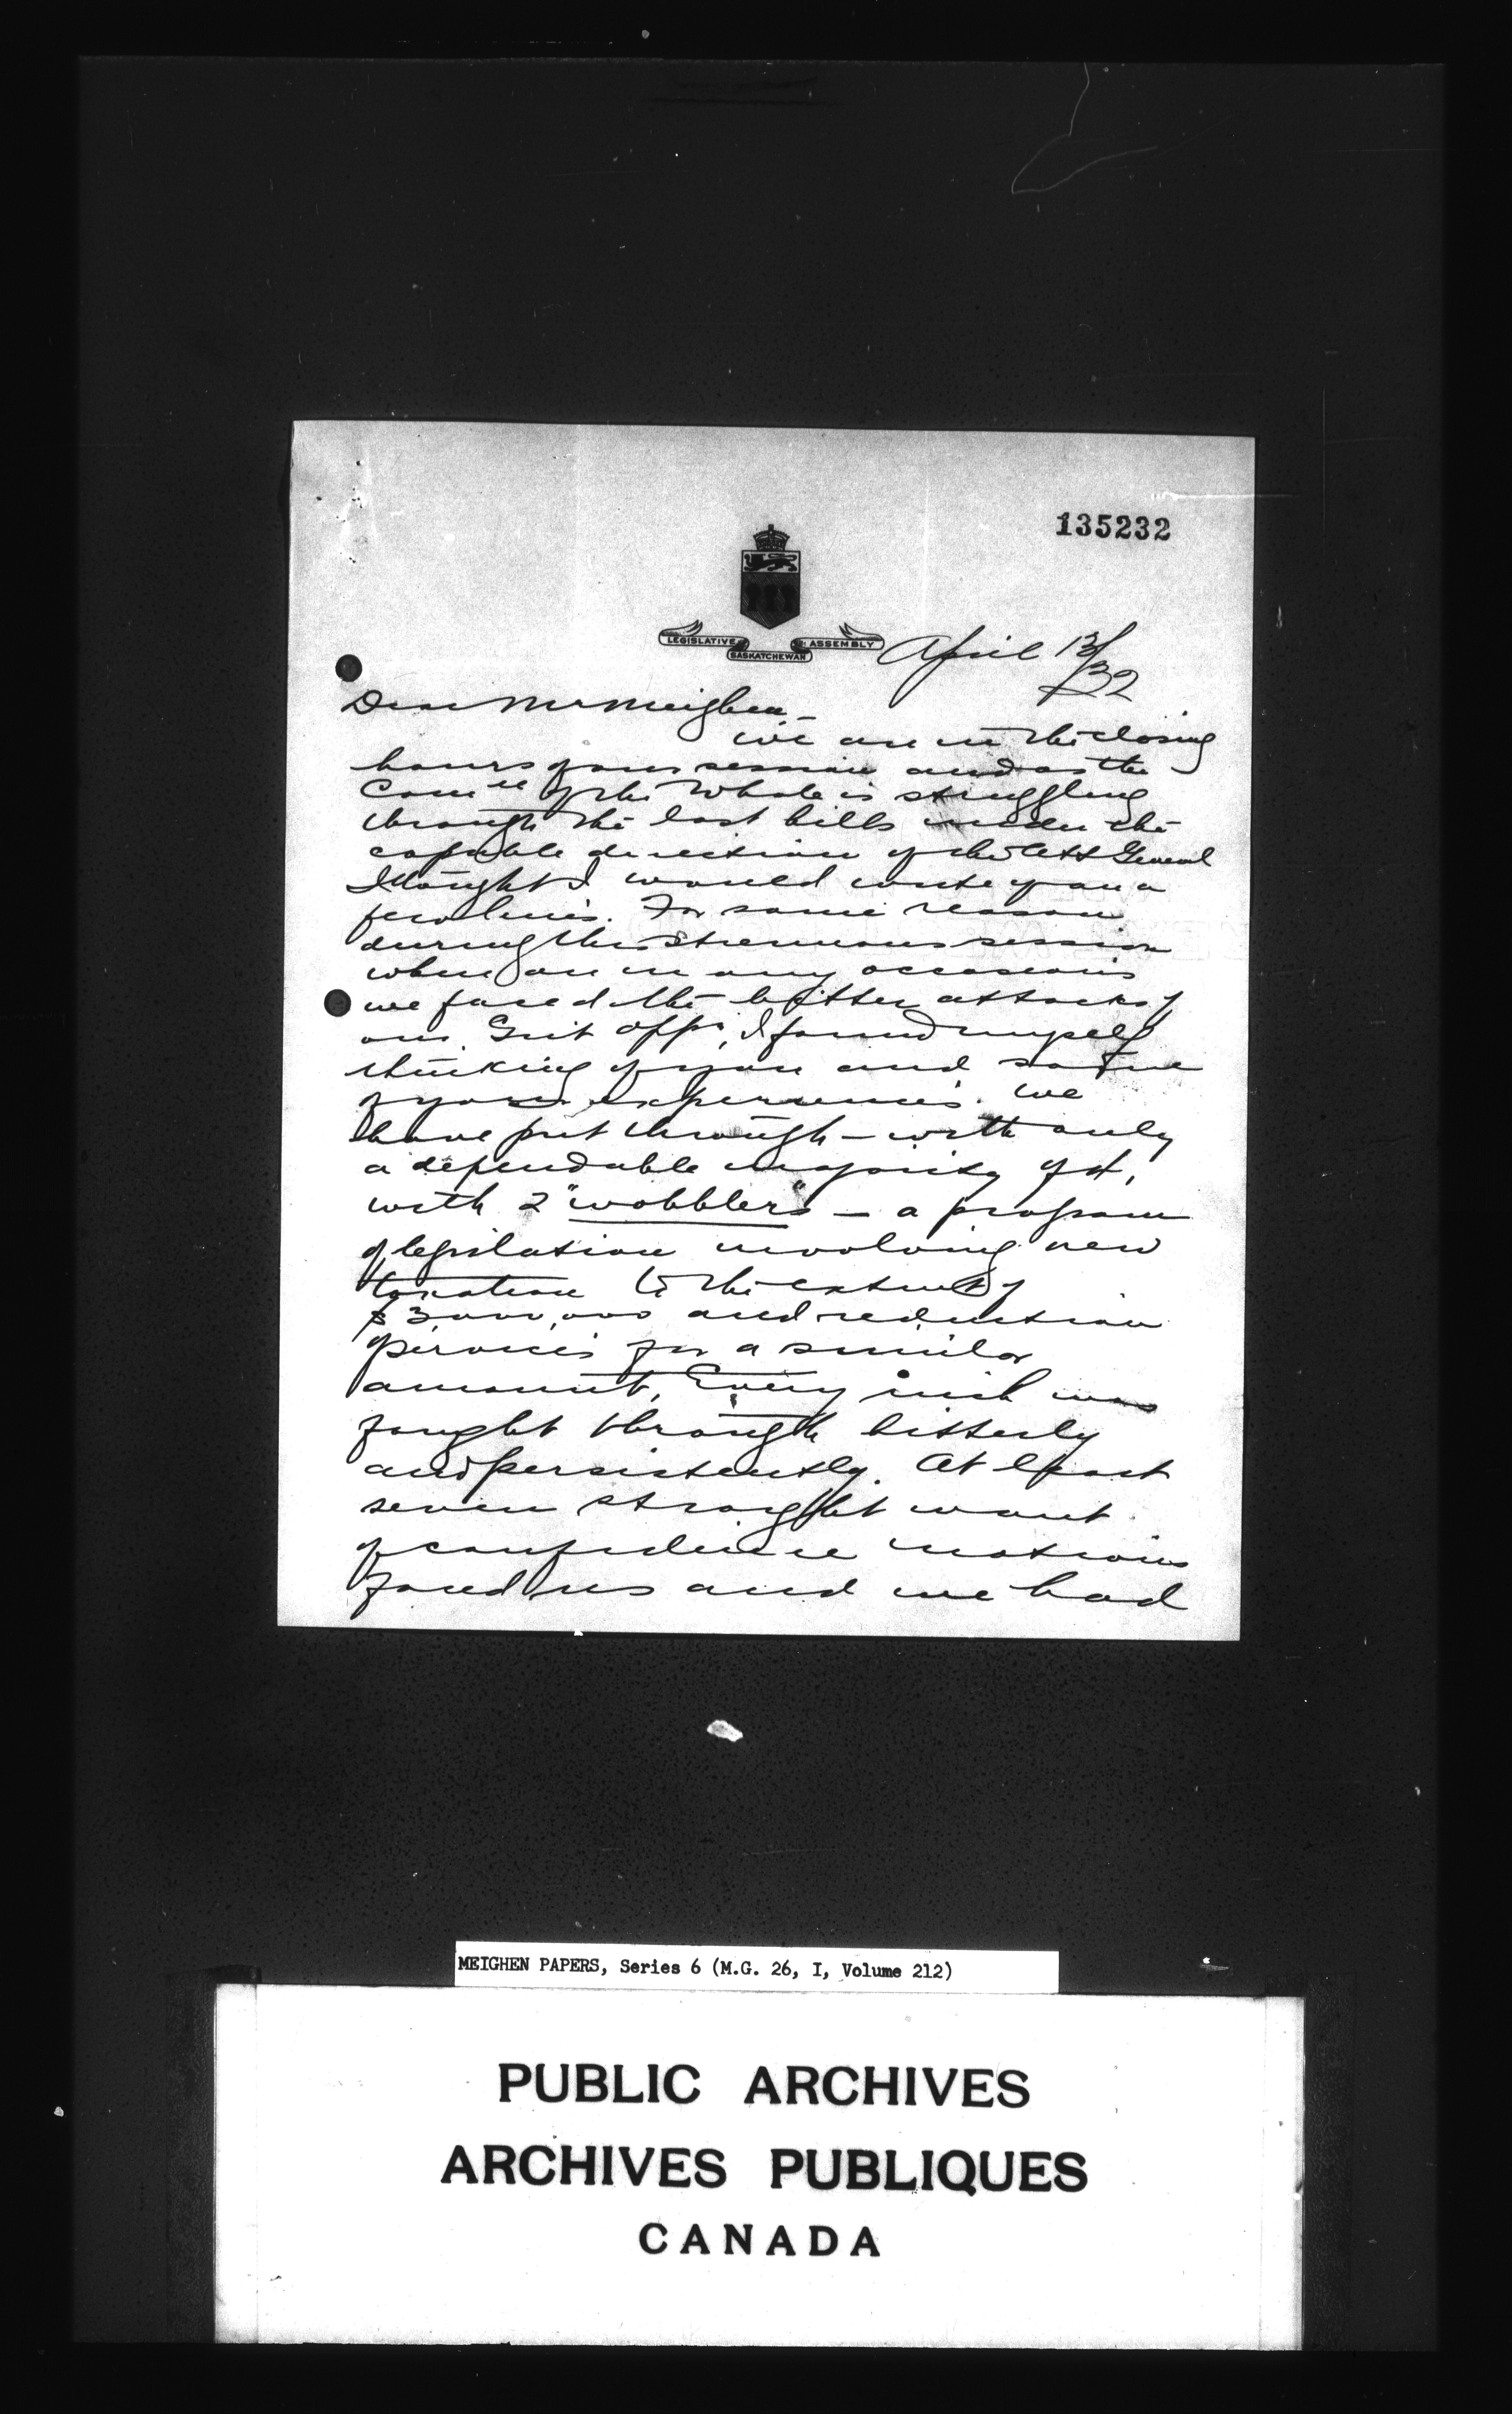 135232
LEGISLATIVE ASSEMBLY
SASKATCHEWAN
April 13/32
Dear Mr Meighen –
We are in the closing
hours of our session and as the
Comtee of the Whole is struggling
through the last bills under the
capable direction of the Att General
I thought I would write you a
few lines. For some reason
during this strenuous session
when on many occasions
we faced the bitter attacks of
our Grit opps, I found myself
thinking of you and some
of your experiences. We
have put through – with only
a dependable majority of 4,
with 2 "wobblers" – a program
of legislation involving new
taxation to the extent of
$3,000,000 and reduction
of services for a similar
amount. Every inch was
fought through bitterly
and persistently. At least
seven straight want
of confidence motions
faced us and we had
MEIGHEN PAPERS, Series 6 (M.G. 26, I, Volume 212)
PUBLIC ARCHIVES
ARCHIVES PUBLIQUES
CANADA